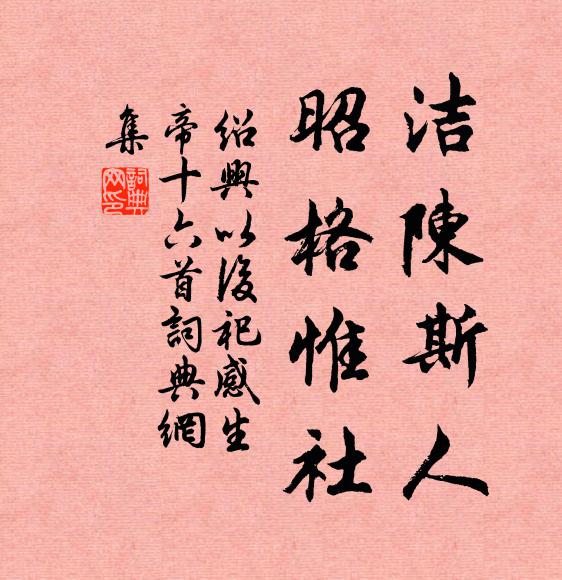 洁陳斯人
昭格惟社
紹興以後祀感生
帝十六首詞典網
集
詞典網印